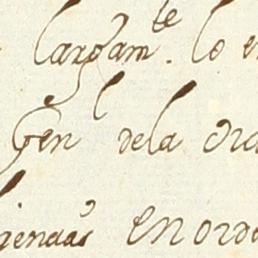 largam.te lo e
Gen.l dela Ord
igencias en orde